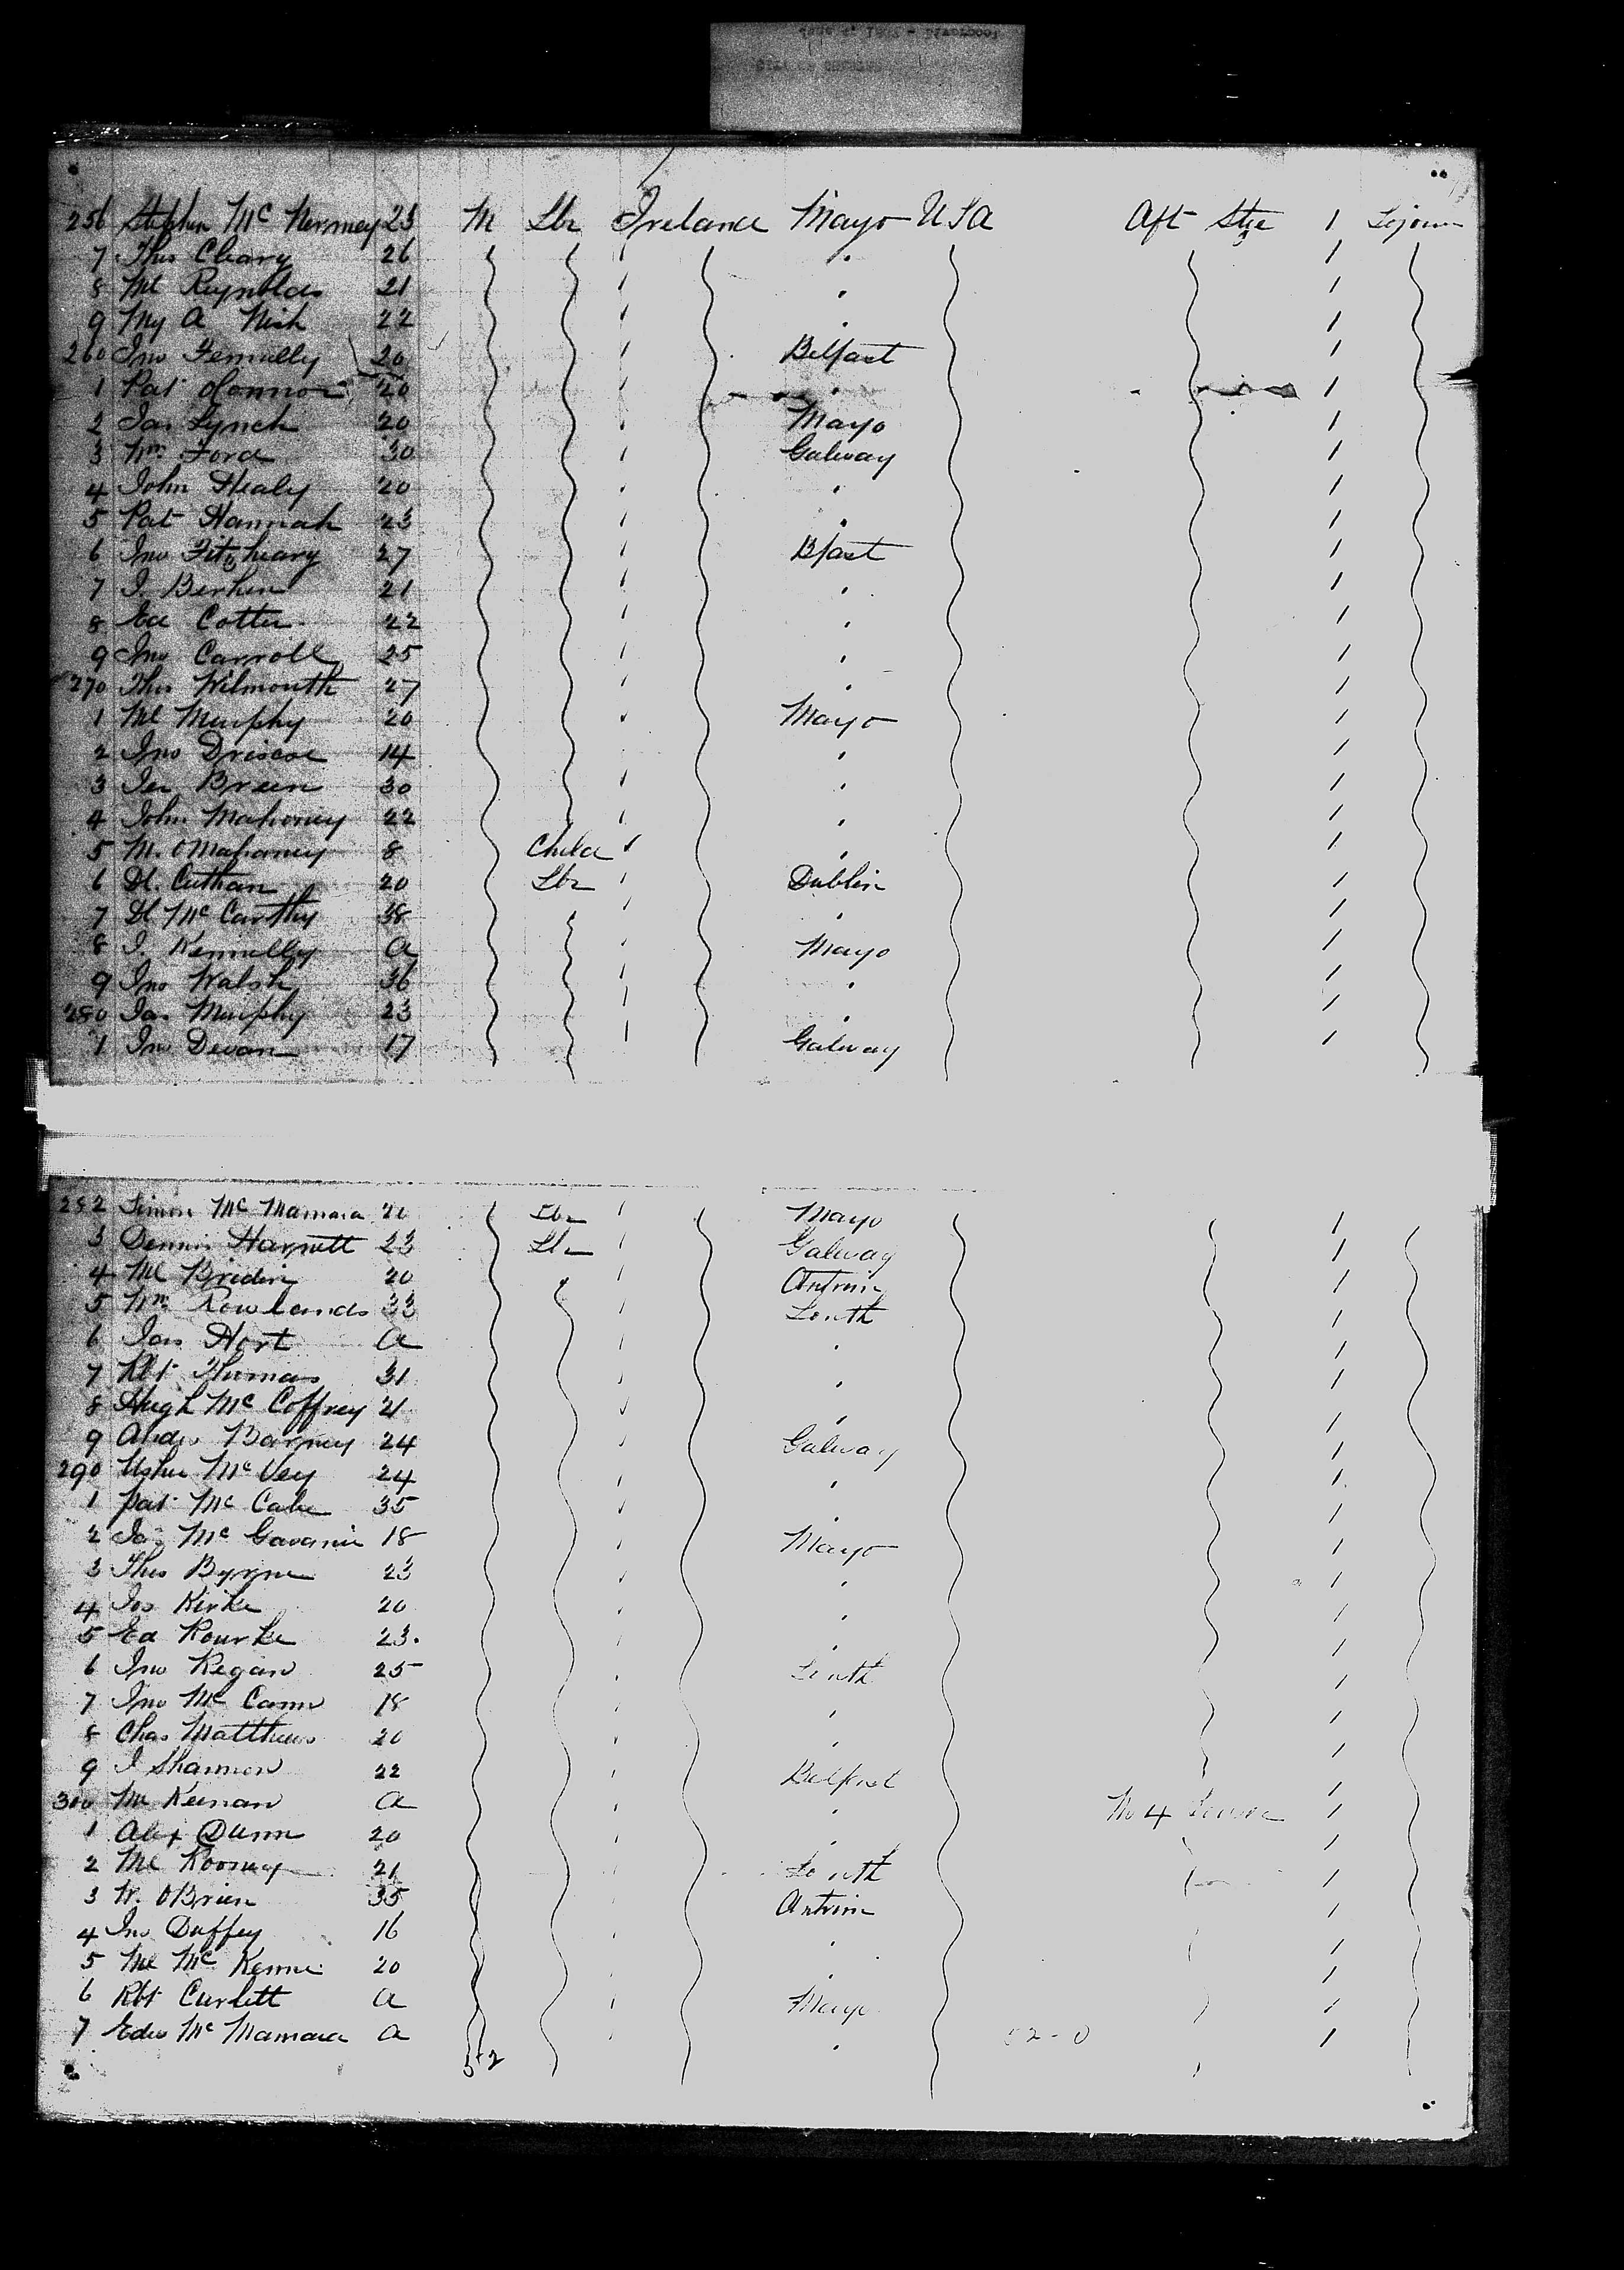 256 Stephen Mc Nerney 23 M Lbr Ireland Mayo USA Aft Stge 1 Sojour
7 Thos Cleary 26 "
8 Ml Reynolds 21 "
9 My A Nish 22 "
260 Jno Fennelly 20 Belfast
1 Pat OConnor 20 "
2 Jas Lynch 20 Mayo
3 Wm Ford 30 Galway
4 John Healy 20 "
5 Pat Hannah 23 "
6 Jno Fitzheary 27 Bfast
7 J. Berkin 21 "
8 Ed Cotter 22 "
9 Jno Carroll 25 "
270 Thos Wilmouth 27 "
1 Ml Murphy 20 Mayo
2 Jno Driscoe 14 "
3 Jer Breen 30 "
4 John Mahoney 22 "
5 M. OMahoney 8 Child "
6 Dl. Cuthan 20 Lbr Dublin
7 Dl McCarthy 38 "
8 J. Kennelly a Mayo
9 Jno Walsh 36 "
280 Jas Murphy 23 "
1 Jno Devan 17 Galway
282 Simon McMamara 20 Lbr Mayo
3 Dennis Harnett 23 Lbr Galway
4 Ml Bridin 20 Antrim
5 Wm Rowlands 33 Louth
6 Jas Hort a "
7 Rbt Thomas 31 "
8 Hugh McCoffrey 21 "
9 Andw Barney 24 Galway
290 Usher McVey 24 "
1 Pat McCabe 35 "
2 Jas McGavanie 18 Mayo
3 Thos Byrne 23 "
4 Jos Kirke 20 "
5 Ed Rourke 23. "
6 Jno Regan 25 Louth
7 Jno McCann 18 "
8 Chas Matthews 20 "
9 J Shannon 22 Belfast
300 M Keenan a " No 4
1 Alex Dunn 20 "
2 Ml Rooney 21 Louth
3 W. OBrien 35 Antrim
4 Jno Duffey 16 "
5 Ml McKenne 20 "
6 Rbt Curlett a Mayo
7 Edw McMamara a " 52-0
52